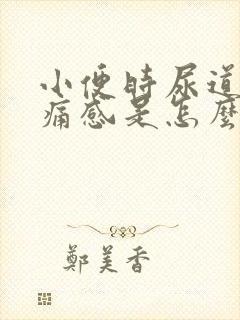 小便時尿道
痛感是怎麼
鄭美香